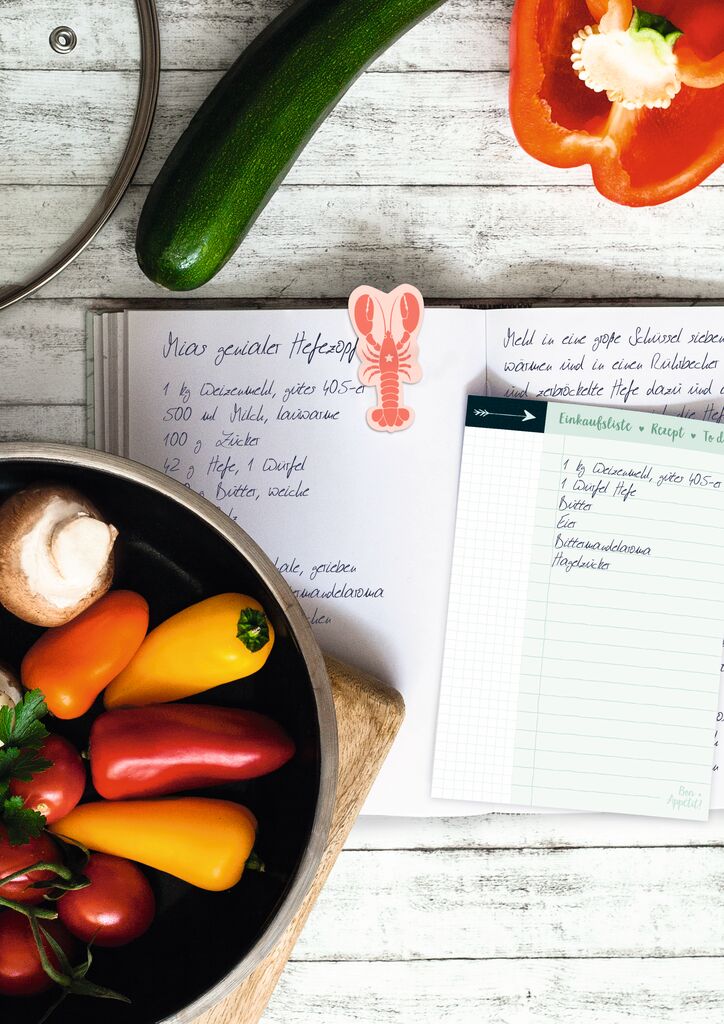 Mias genialer Hefezopf
1 kg Weizenmehl, gutes 405-er
500 ml Milch, lauwarme
100 g Zucker
42 g Hefe, 1 Würfel
g Butter, weiche
ale, gerieben
mandelaroma
chen
Mehl in eine große Schüssel sieben
wärmen und in einen Rührbecher
und zerbröckelte Hefe dazu und
die Hefe
Einkaufsliste ♥ Rezept ♥ To d
1 kg Weizenmehl, gutes 405-er
1 Würfel Hefe
Butter
Eier
Bittermandelaroma
Hagelzucker
Bon
Appétit!